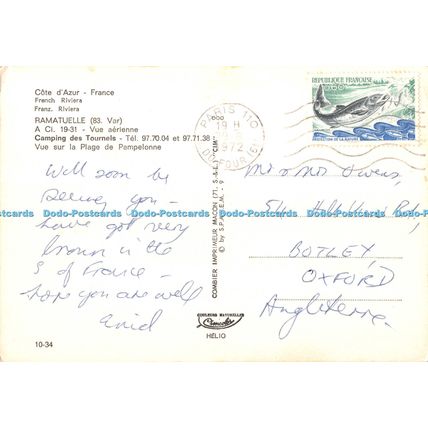 Côte d'Azur - France
French Riviera
Franz. Riviera
RAMATUELLE (83. Var)
A Ci. 19-31 - Vue aérienne
Camping des Tournels - Tél. 97.70.04 et 97.71.38
Vue sur la Plage de Pampelonne
Will soon be
seeing you -
have got very
brown in the
S of France -
hope you are well
Enid
10-34
COMBIER IMPRIMEUR MACON (71. S.-&-L.) "CIM"
© by S.P.A.D.E.M. - 9
COULEURS NATURELLES
HÉLIO
PARIS 110
19 H
1972
R. DUFOUR (6e)
RÉPUBLIQUE FRANÇAISE
PROTECTION DE LA NATURE
Mr & Mrs Owens,
Rd,
BOTLEY,
OXFORD
Angleterre.
Dodo-Postcards Dodo-Postcards Dodo-Postcards Dodo-Postcards Dodo-Postcards Dodo-Postcards